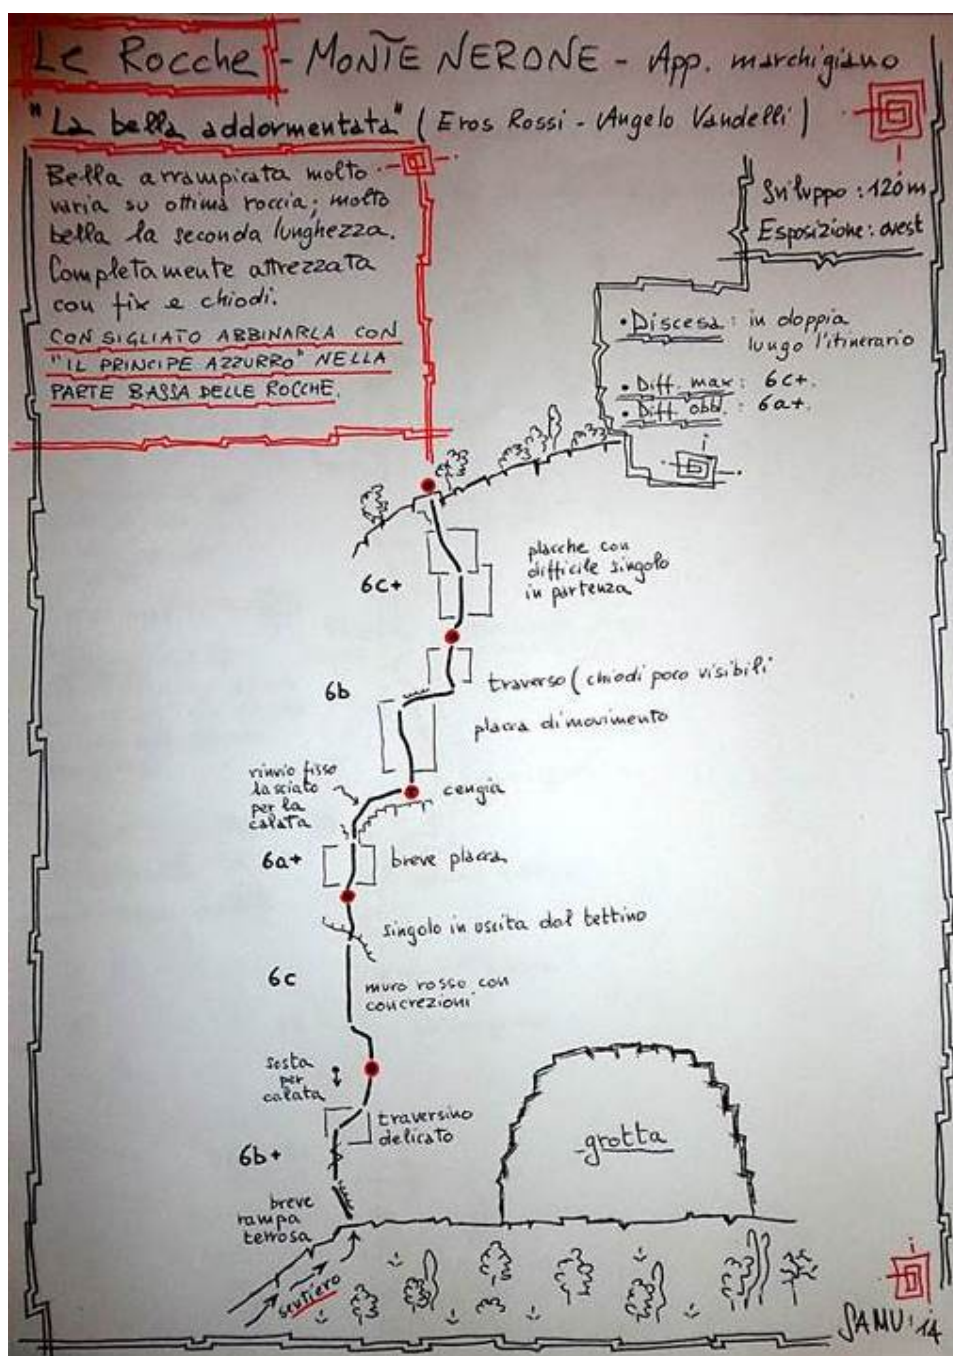 Le Rocche - MONTE NERONE - App. marchigiano
"La bella addormentata" (Eros Rossi - Angelo Vandelli)
Bella arrampicata molto
varia su ottima roccia; molto
bella la seconda lunghezza.
Completamente attrezzata
con fix e chiodi.
CONSIGLIATO ABBINARLA CON
"IL PRINCIPE AZZURRO" NELLA
PARTE BASSA DELLE ROCCHE.
Sviluppo: 120m
Esposizione: ovest
• Discesa: in doppia
lungo l'itinerario
• Diff. max: 6c+.
• Diff. obbl.: 6a+.
placche con
difficile singolo
in partenza
6c+
6b
traverso (chiodi poco visibili
placca di movimento
rinvio fisso
lasciato
per la
calata
cengia
6a+
breve placca
singolo in uscita dal tettino
6c
muro rosso con
concrezioni
sosta
per
calata
traversino
delicato
6b+
grotta
breve
rampa
terrosa
sentiero
SAMU '14